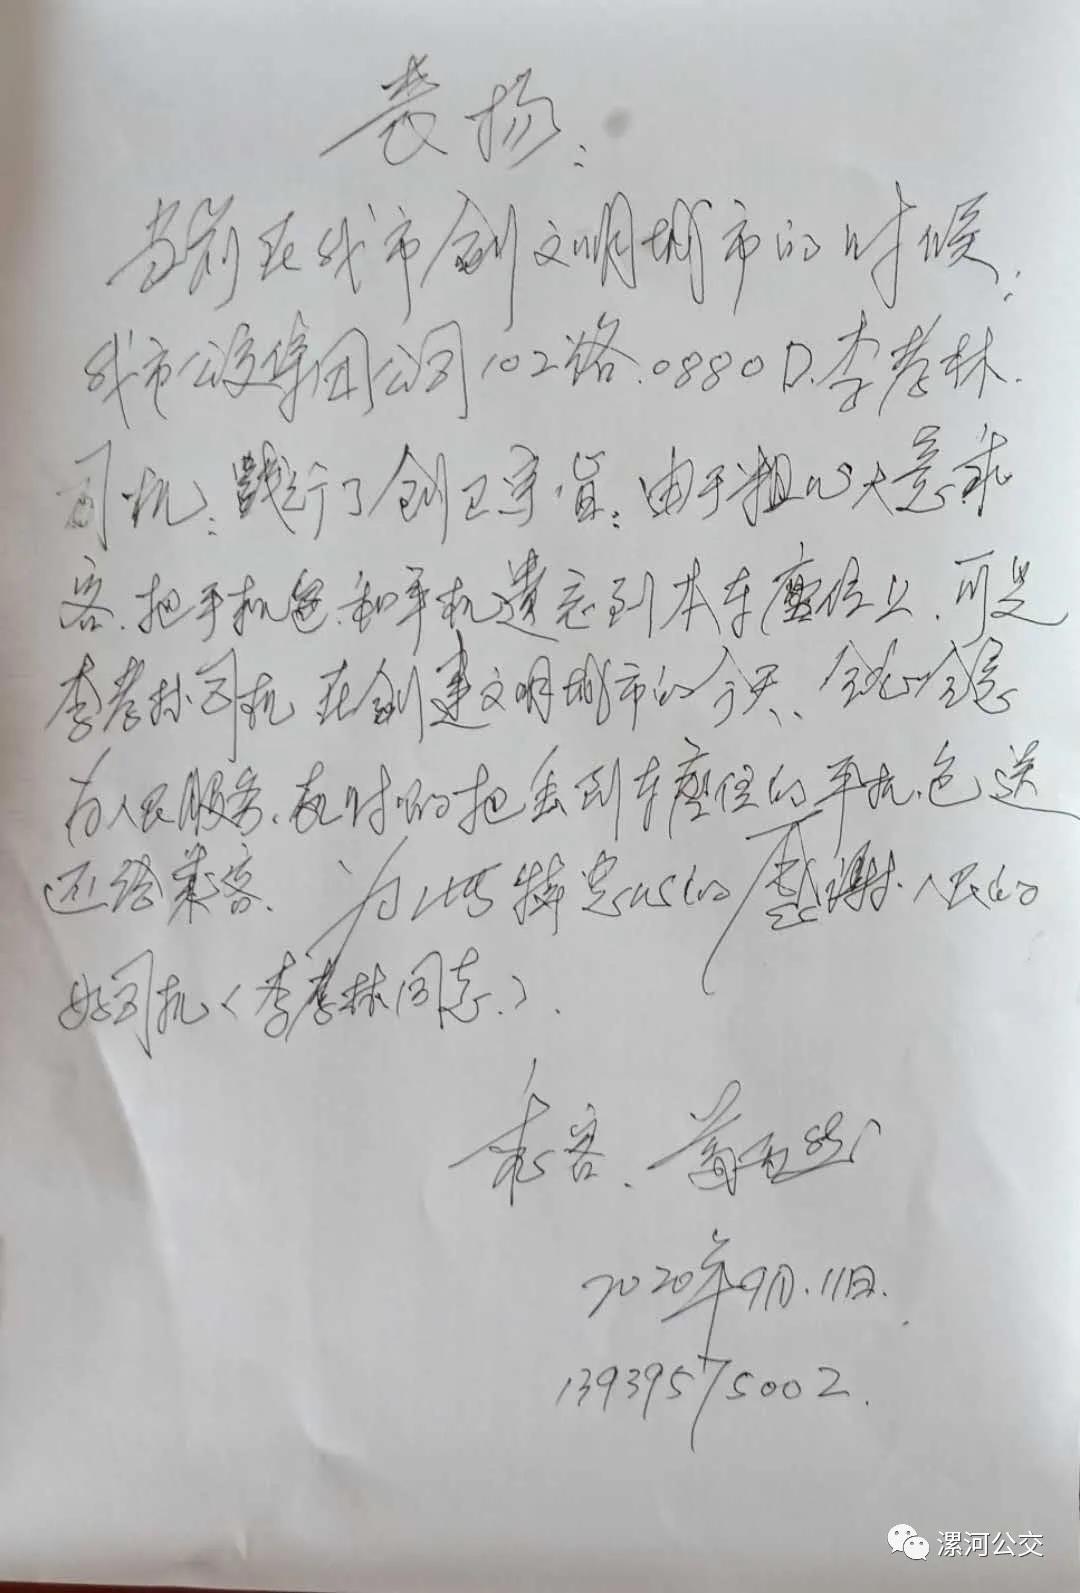 表扬:
当前在我市创文明城市的时候:
我市公交集团公司102路.0880D.李孝林.
司机:践行了创卫宗旨:由于粗心大意乘
客.把手机包.和手机遗忘到本车座位上.可是
李孝林司机在创建文明城市的今天、全心全意
为人民服务、及时的把丢到车座位的手机.包送
还给乘客. 为此特衷心的感谢.人民的
好司机(李孝林同志.).
乘客.
2020年9月.11日.
13939575002.
漯河公交